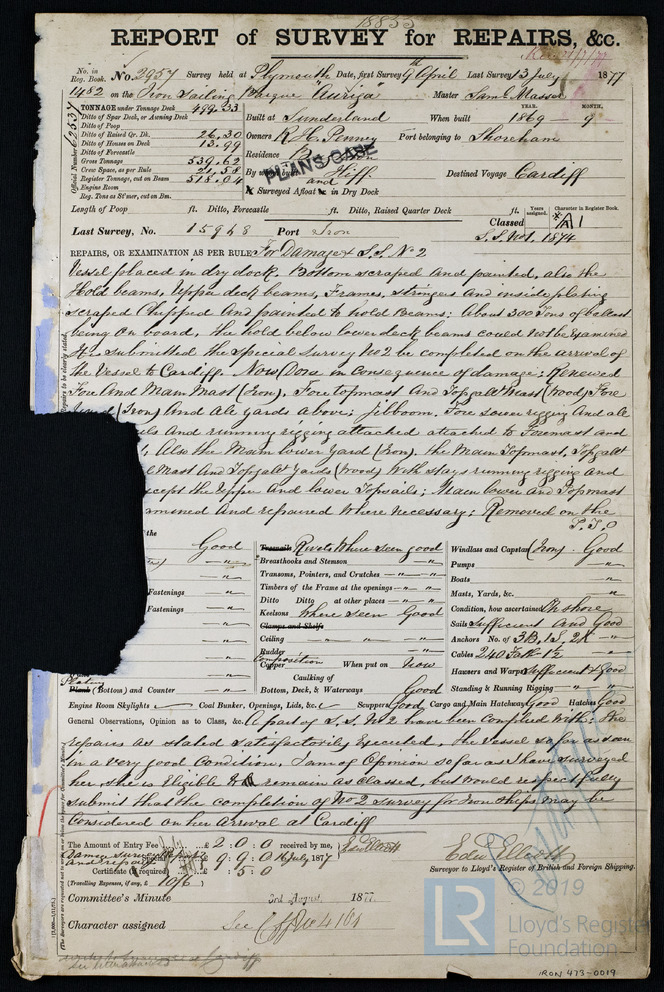 18833
REPORT of SURVEY for REPAIRS, &c.
No. in Reg. Book. No. 2957 Survey held at Plymouth Date, first Survey 9th April Last Survey 13 July 1877
1482 on the Iron Sailing Barque "Auriga" Master Saml Mason
Official Number
TONNAGE under Tonnage Deck 499.33
Ditto of Spar Deck, or Awning Deck
Ditto of Poop
Ditto of Raised Qr. Dk. 26.30
Ditto of Houses on Deck 13.99
Ditto of Forecastle
Gross Tonnage 539.62
Crew Space, as per Rule 21.58
Register Tonnage, cut on Beam 518.04
Engine Room
Reg. Tons as St'mer, cut on Bm.
Built at Sunderland When built YEAR. 1869 MONTH. 9
Owners R H Penney Port belonging to Shoreham
Residence
PLANS CASE
By Iliff and
Destined Voyage Cardiff
Surveyed Afloat or in Dry Dock
Length of Poop ft. Ditto, Forecastle ft. Ditto, Raised Quarter Deck ft.
Years assigned. Character in Register Book.
Classed A1
Last Survey, No. 15948 Port Iron S.S. No 1. 1874
REPAIRS, OR EXAMINATION AS PER RULE For Damage & S.S. No 2
Vessel placed in dry dock. Bottom scraped and painted, also the
Hold beams, Upper deck beams, Frames, stringers and inside plating
scraped Chipped and painted to hold Beams: About 300 Tons of ballast
being on board, the hold below lower deck beams could not be examined
submitted the Special Survey No 2 be completed on the arrival of
the Vessel to Cardiff. Now Done in Consequence of damage: Renewed
Fore and Main Mast (Iron), Fore topmast and Topgalt Mast (Wood) Fore
Yard (Iron) and all yards above; jibboom, Fore lower rigging and all
and running rigging attached attached to Foremast and
Also the Main Lower Yard (Iron), the Main Topmast, Topgalt
Mast and Topgalt yards (Wood) with stays running rigging and
except the Upper and lower Topsails; Main lower and Topmast
examined and repaired where necessary; Removed on the
P.T.O
the
Good
Fastenings "
Fastenings "
Plating
Plank (Bottom) and Counter "
Treenails Rivets Where seen good
Breasthooks and Stemson "
Transoms, Pointers, and Crutches "
Timbers of the Frame at the openings "
Ditto Ditto at other places "
Keelsons Where seen Good
Clamps and Shelfs
Ceiling " " "
Rudder
Composition
Copper When put on Now
Caulking of
Bottom, Deck, & Waterways Good
Windlass and Capstan (Iron) Good
Pumps "
Boats "
Masts, Yards, &c. "
Condition, how ascertained On shore
Sails Sufficient and Good
Anchors No. of 3B, 1S, 2K "
Cables 240 "
Hawsers and Warps Sufficient & Good
Standing & Running Rigging " "
Engine Room Skylights Coal Bunker, Openings, Lids, &c. Scuppers Good Cargo and Main Hatchways Good Hatches Good
General Observations, Opinion as to Class, &c. A part of S.S. No 2 have been Complied With: The
repairs as stated satisfactorily executed, the vessel so far as seen
in a very good Condition, I am of Opinion so far as I have surveyed
her, she is Eligible to remain as Classed, but would respectfully
submit that the completion of No 2 survey for Iron ships may be
Considered on her arrival at Cardiff
The Amount of Entry Fee £ 2 : 0 : 0 received by me, Edw Elliott
Damage Survey £ 9 : 9 : 0 16 July 1877
and repairs
Certificate (if required) : 5 : 0
(Travelling Expenses, if any, £ 10/6 )
Edw Elliott
Surveyor to Lloyd's Register of British and Foreign Shipping.
Committee's Minute 3rd August 1877
Character assigned See
© 2019
LR
Lloyd's Register
Foundation
IRON 473-0019